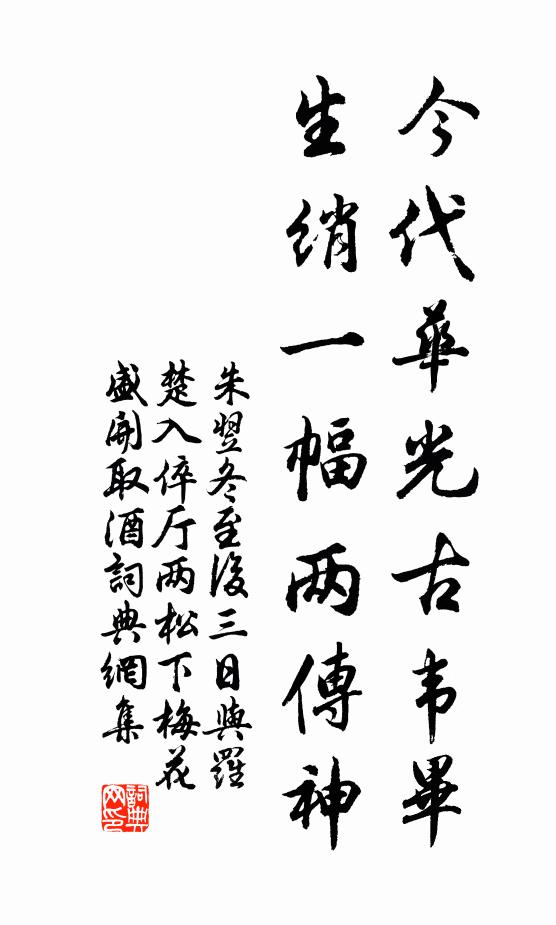 今代華光古韦畢
生绡一幅两傳神
朱翌冬至後三日與羅
楚入倅厅两松下梅花
盛開取酒詞典網集
詞典网印